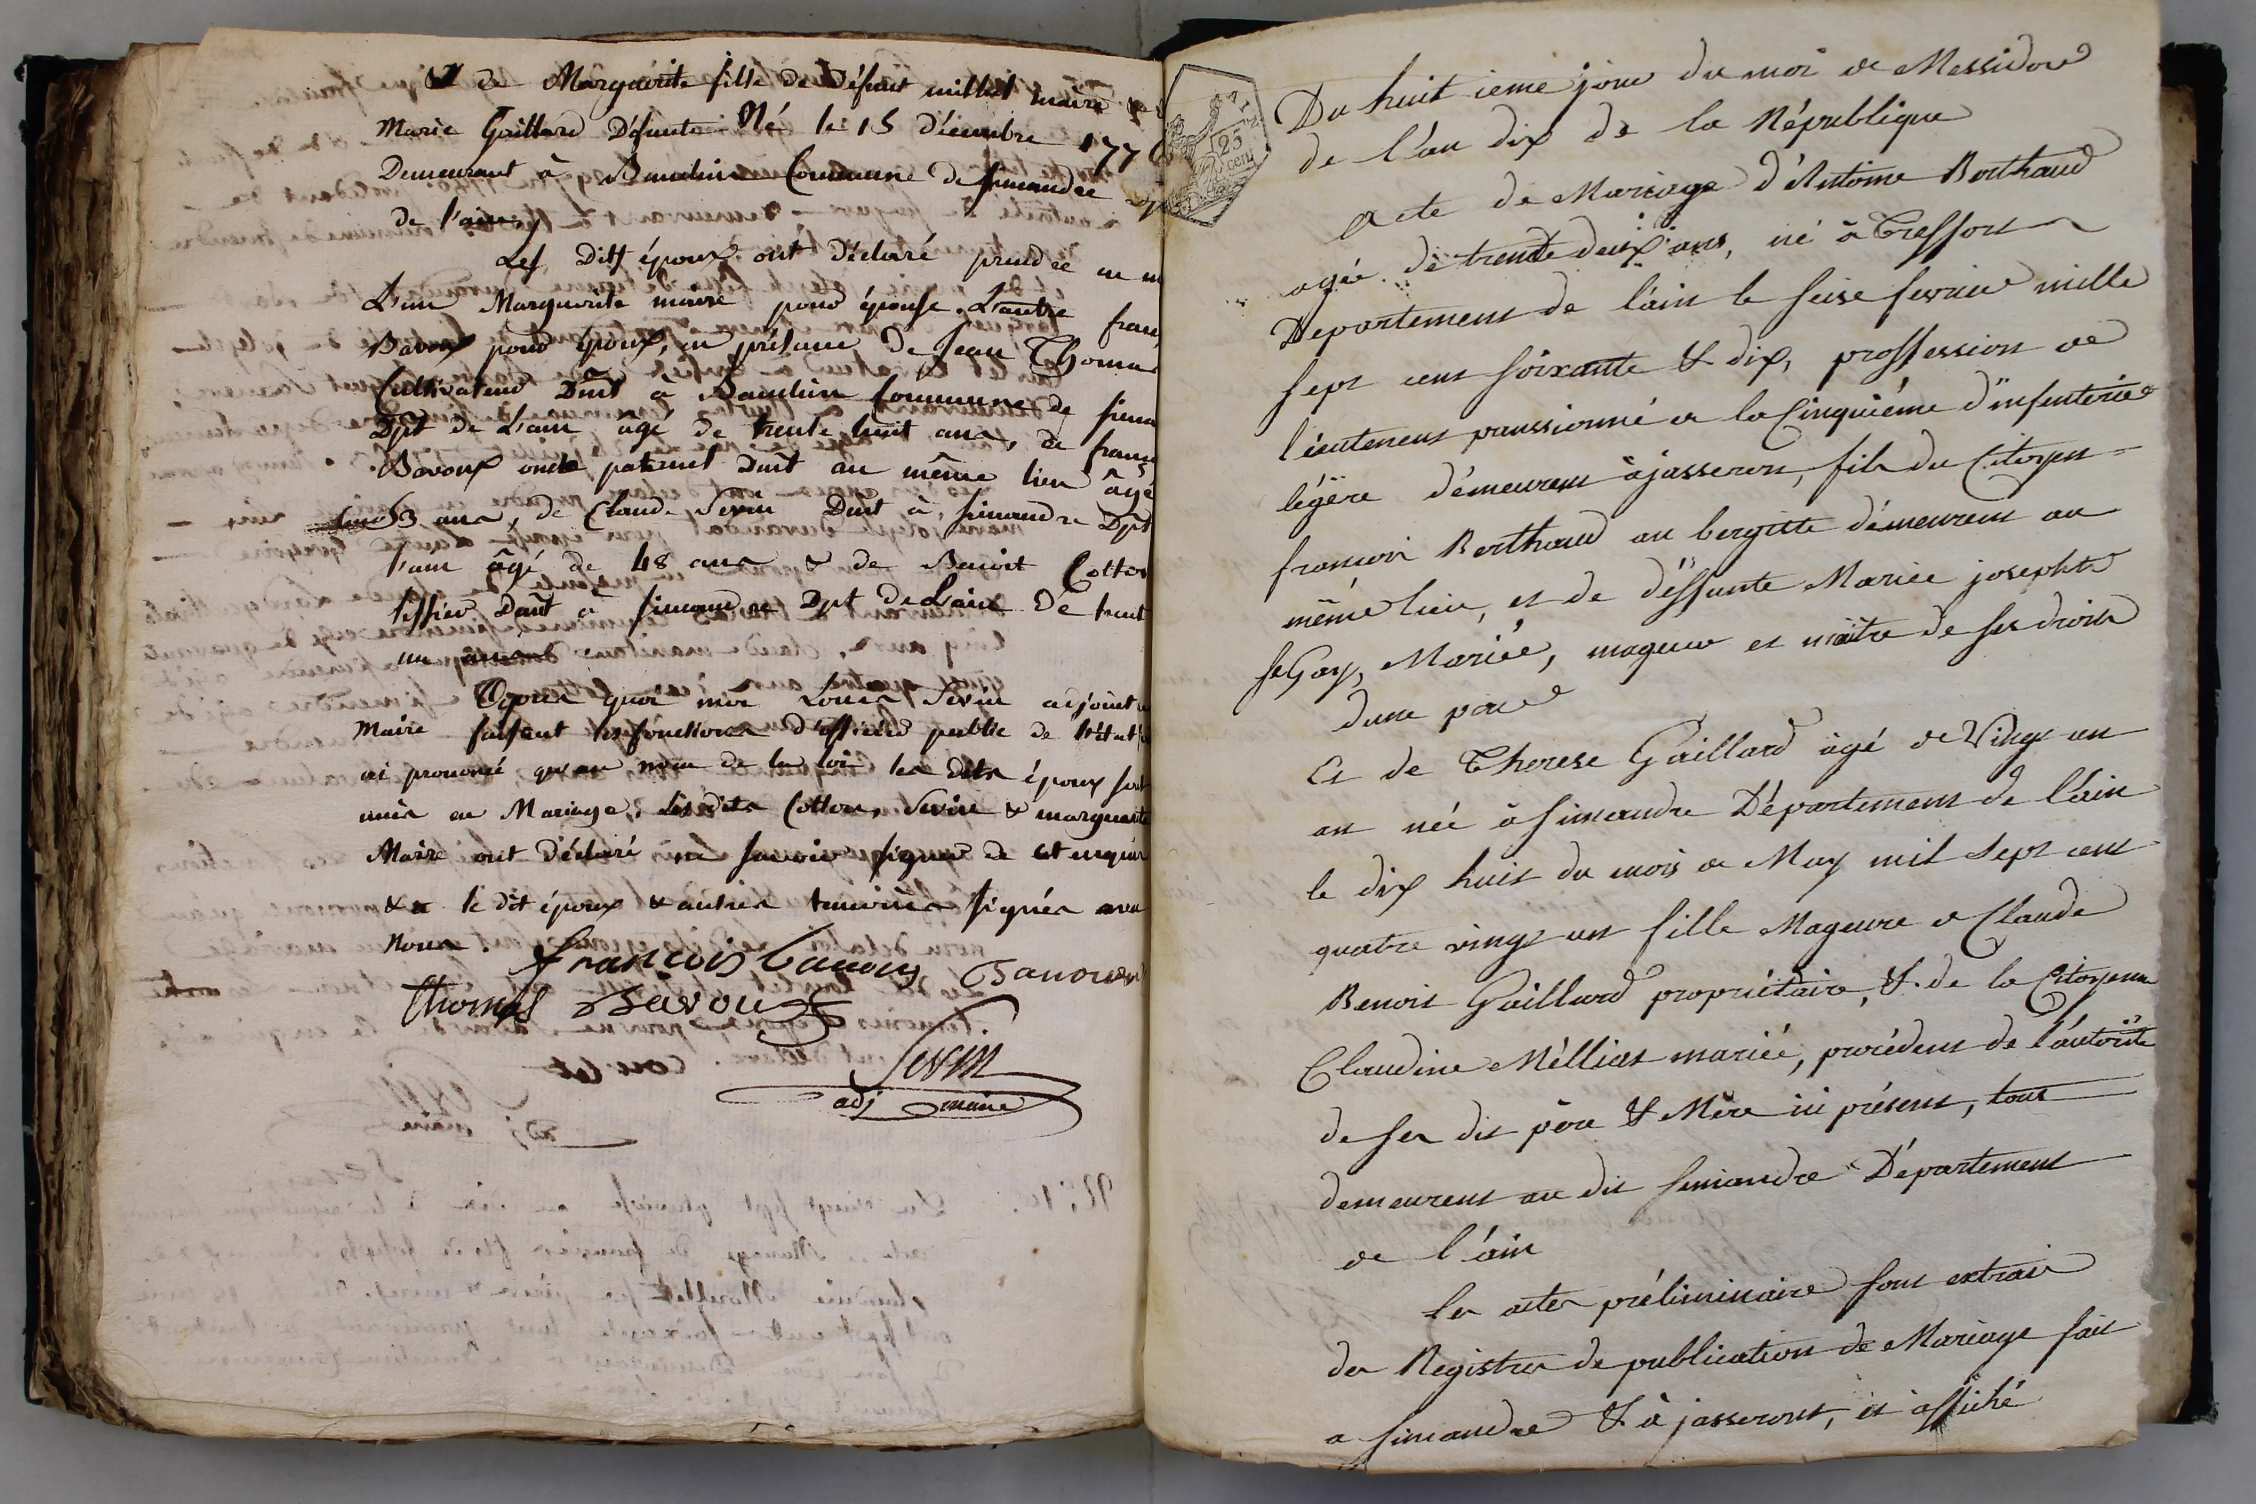 & de Marguerite fille de Défunt millet maire &
Marie Gaillard Défunte Né le 15 décembre 177
Demeurant à Baudin Commune de simandre
de l'ain,
Les Dits époux ont déclaré prendre en m
L'un Marguerite maire pour épouse, L'autre franc
Bavoux pour époux, en présence de Jean Thomas
Cultivateur Dmt à Baudin Commune de siman
Dpt de L'ain âgé de trente huit ans, de franç
Bavoux oncle paternel Dmt au même lieu âgé
53 ans, de Claude Sevin Dmt à simandre Dpt
l'ain âgé de 48 ans & de Benoit Cotton
tissier Dmt à simandre Dpt De L'ain De trent
un ans
Après quoi moi Louis Sevin adjoint
Maire faisant les fonctions d'officier public de l'état
ai prononcé qu'au nom de la loi les dits époux sont
unis en Mariage, Les dits Cotton, Sevin & marguerite
Maire ont déclaré ne savoir signer de ce enquis
& le dit époux & autres temoins signés avec
Nous.
françois bavoux Bavoux
thomas Bavoux
Sevin
adj maire
AIN
25
cent
Du huit ieme jour du moi de Messidor
de l'an dix de la République
Acte de Mariage d'Antoine Berthaud
agée de trente deux ans, né à Treffort
Departement de l'ain le seise fevrier mille
sept cent soixante & dix, proffession de
lieutenent panssionné de la Cinquiéme d'infenterie
légère démeurent à jasseron, fils du Citoyen
francois Berthaud au bergitte démeurent au
même lieu, et de déffunte Mariee josephte
feGay, Mariée, mageur et maître de ses droits
dune part
Et de Therese Gaillard âgé de Vingt un
an née à simandre Département de l'ain
le dix huit du mois de May mil sept cent
quatre vingt un fille Mageure de Claude
Benoit Gaillard propriétaire, & de la Citoyenne
Claudine Méllias mariée, procédent de l'autorité
de ses dit père & Mère ici présent, tous
demeurent au dit simandre Département
de l'ain
les actes préliminaire sont extrait
des Registres de publication de Mariage fait
a simandre & à jasseront, et affiché